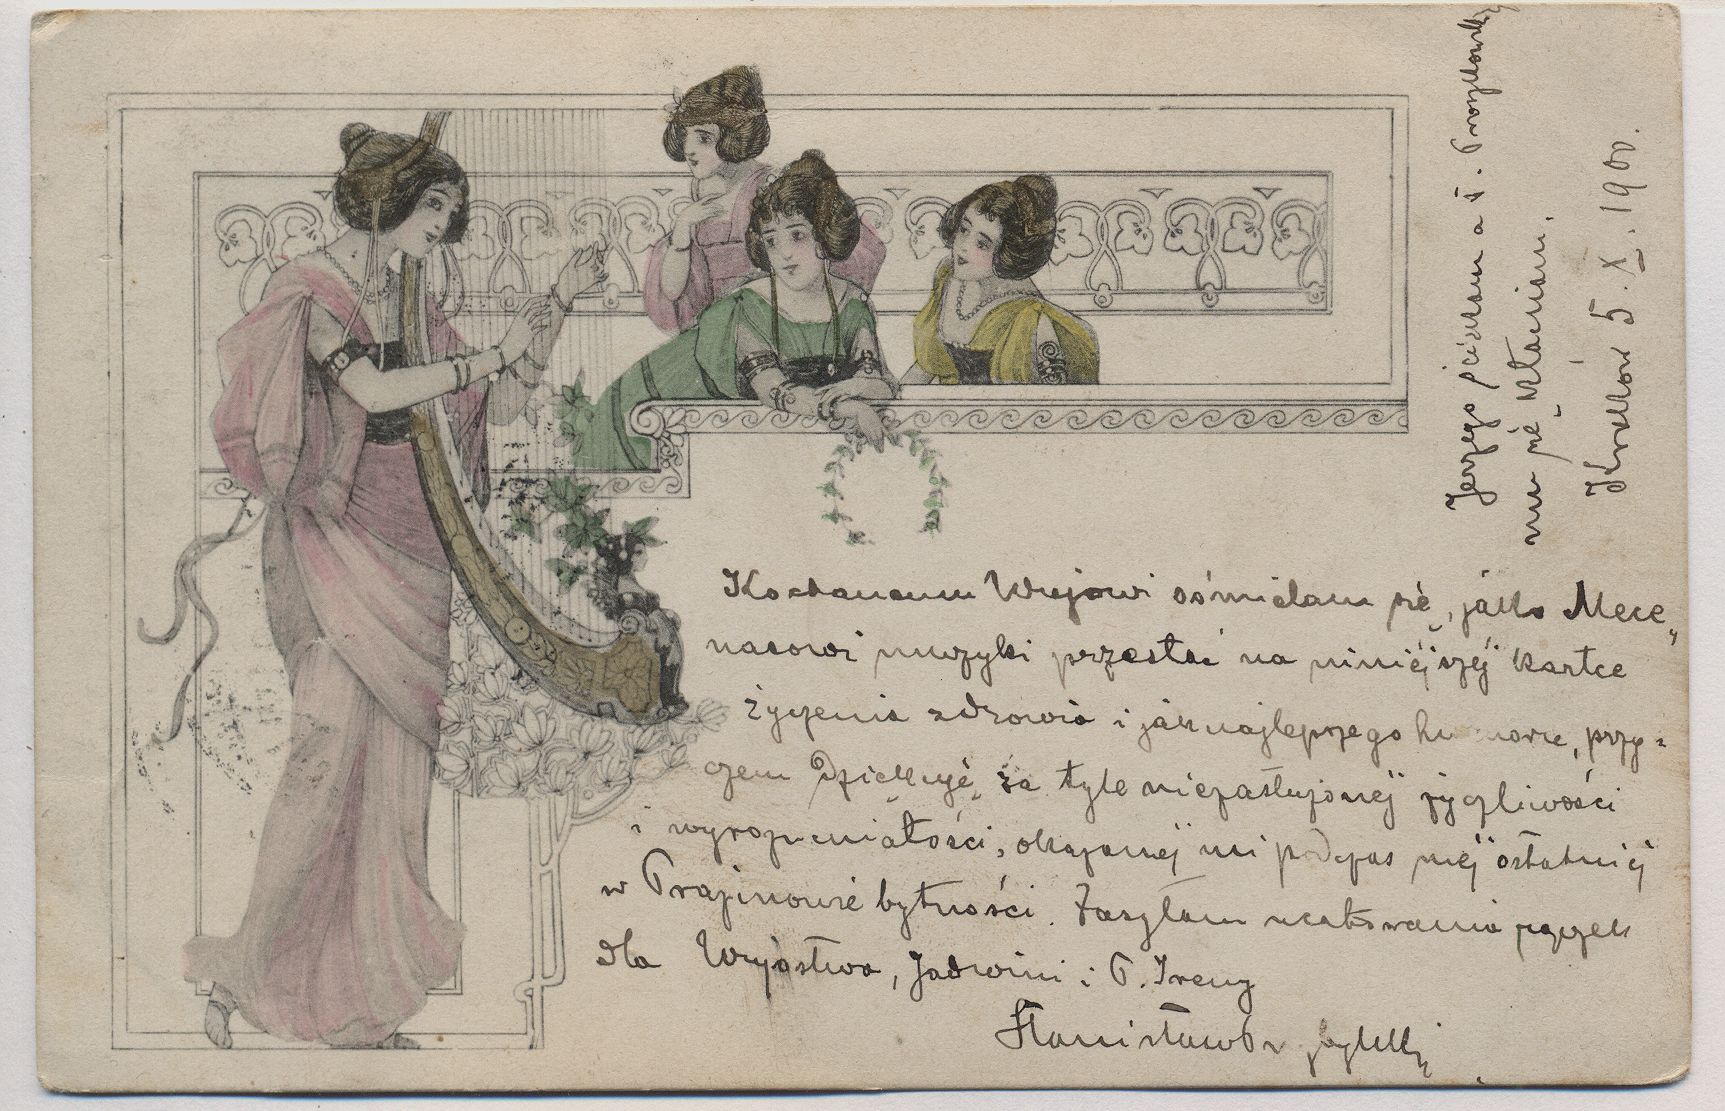 Kochanemu Wujowi ośmielam się, jako Mece„
nasowi muzyki przesłać na niniejszej kartce
życzenia zdrowia i jaknajlepszego humoru, przy„
czem dziękuję za tyle niezasłużonej życzliwości
i wyrozumiałości, okazanej mi podczas mej ostatniej
w bytności. Zasyłam ucałowania rączek
dla Wujostwa, Jadwini i P. Ireny
Stanisław
Jerzego ściskam a P.
mu się kłaniam.
Kraków 5.X.1900.